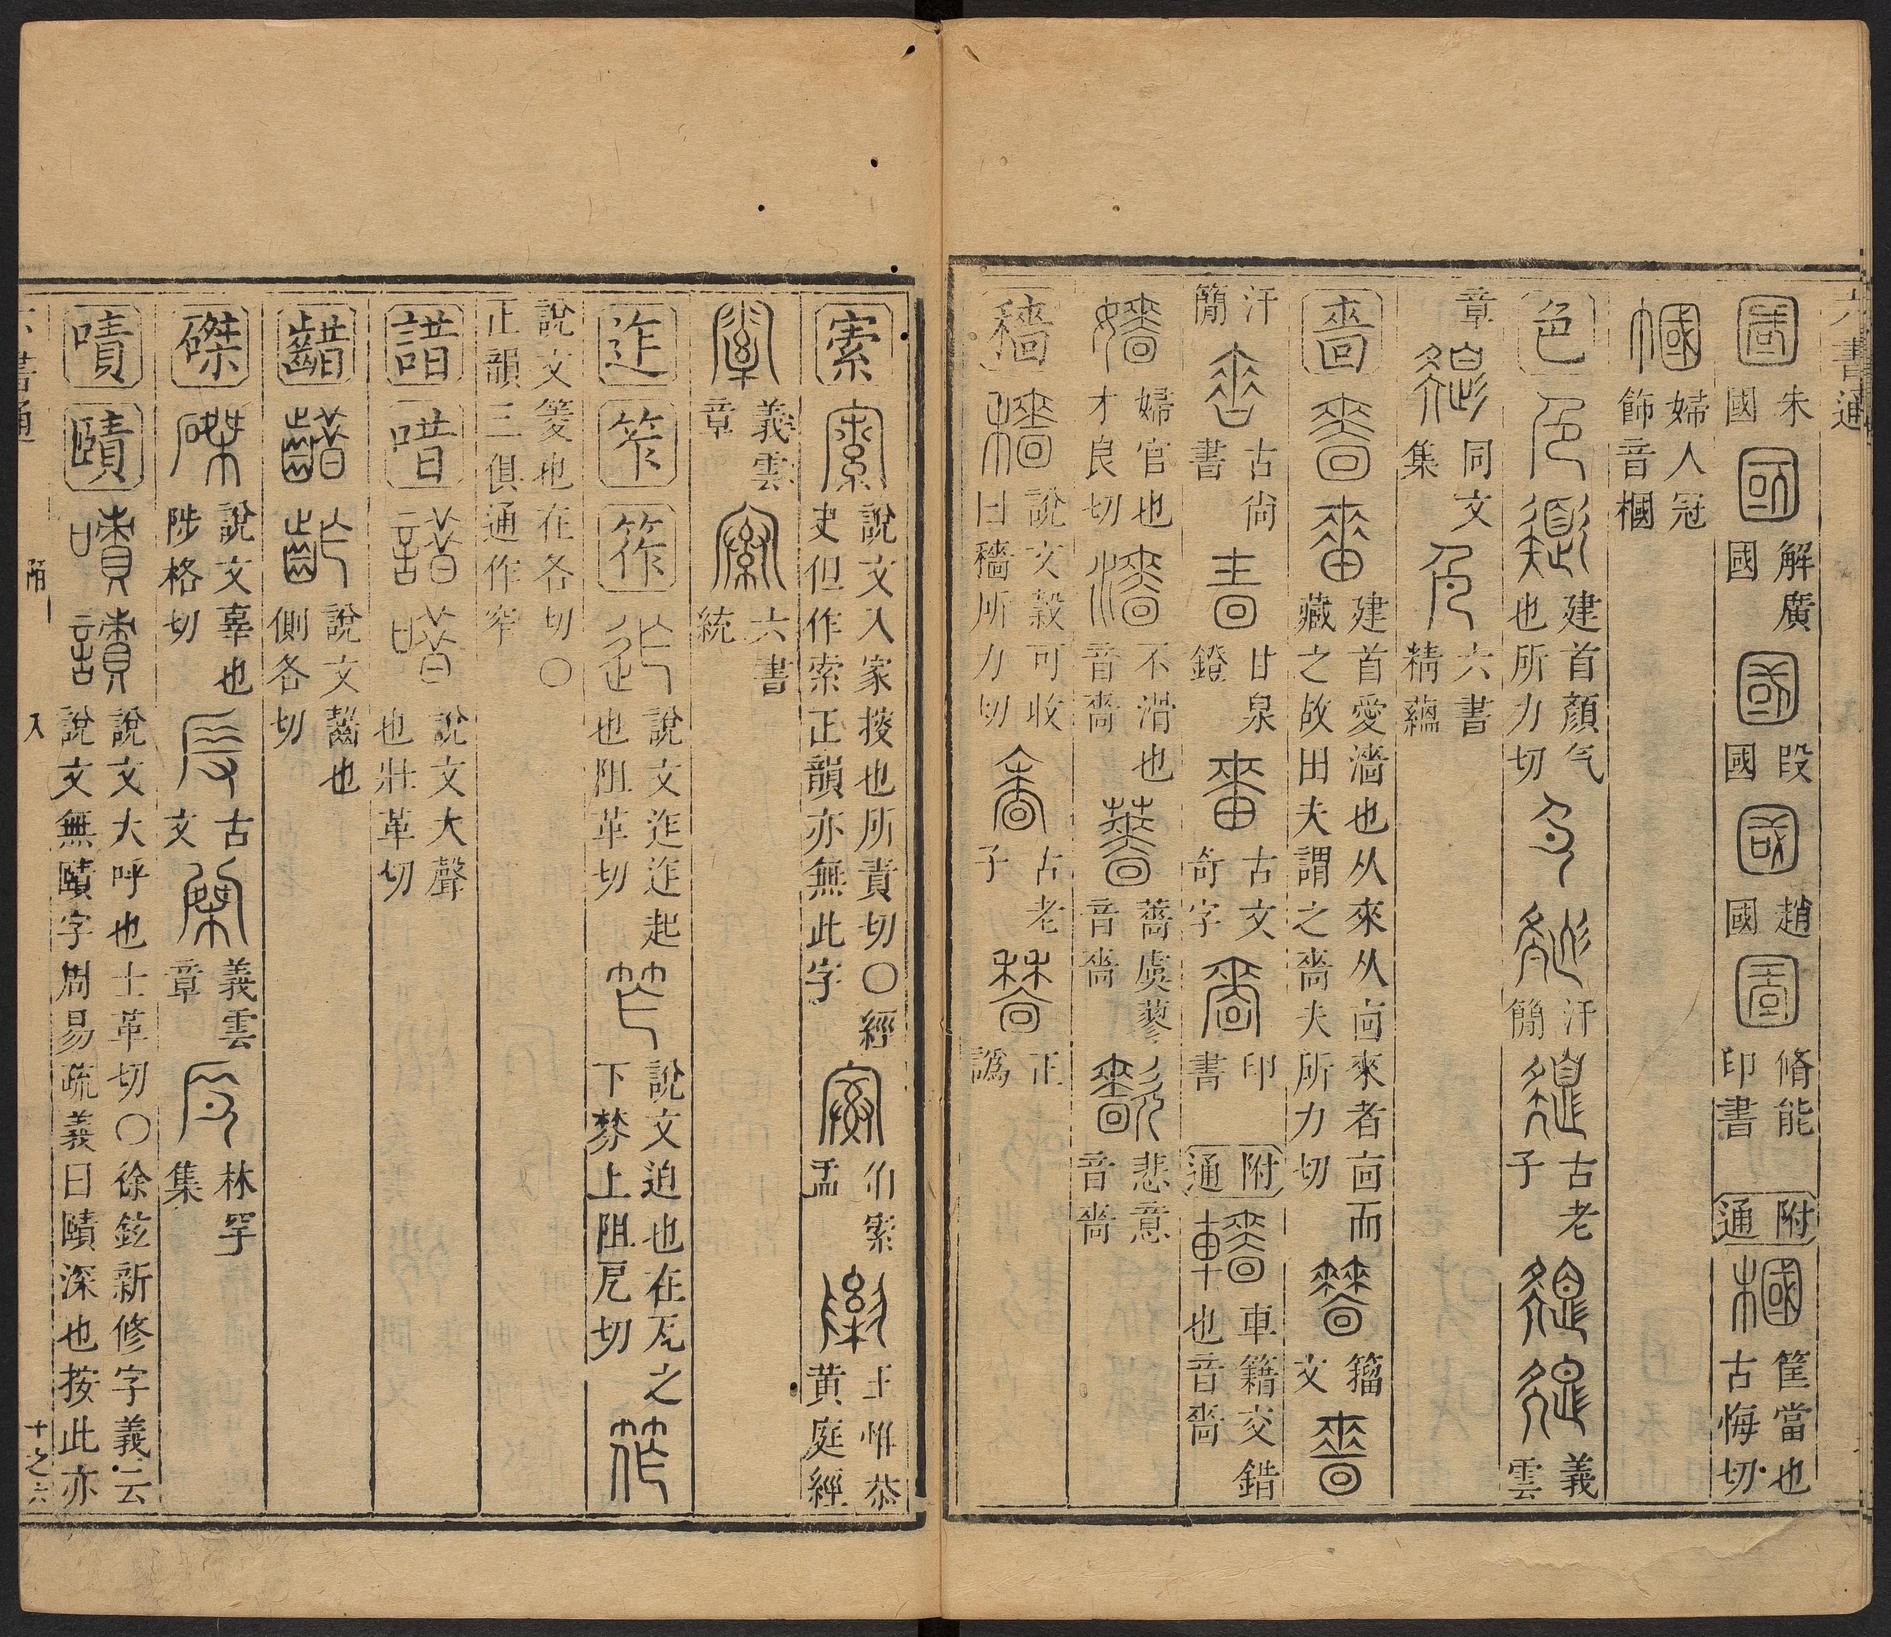 六書通
朱國 解廣國 段國 趙國 脩能印書 附通 筐當也古悔切
婦人冠飾音槶
色 建首顏气也所力切 汗簡 古老子 義雲
章 同文集 六書精蘊
嗇 建首愛濇也从來从㐭來者㐭而藏之故田夫謂之嗇夫所力切 籀文
汗簡 古尚書 甘泉鐙 古文奇字 印書 附通 車籍交錯也音嗇
婦官也才良切 不滑也音嗇 薔虞蓼音嗇 悲意音嗇
穡 說文穀可收曰穡所力切 古老子 正譌
索 說文入家搜也所責切〇經史但作索正韻亦無此字 伯索盂 王惟恭黃庭經
義雲章 六書統
迮 笮 筰 說文迮迮起也阻革切 說文迫也在瓦之下棼上阻厄切
說文筊也在各切〇正韻三俱通作窄
諎 唶 說文大聲也壯革切
齰 說文齧也側各切
磔 說文辜也陟格切 古文 義雲章 林罕集
嘖 賾 說文大呼也士革切〇徐鉉新修字義云說文無賾字周易疏義曰賾深也按此亦
六書通 陌 入 十之六